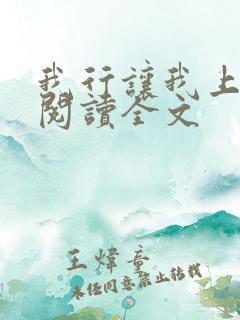 我行讓我上
閱讀全文
王煒童
未經同意禁止轉載